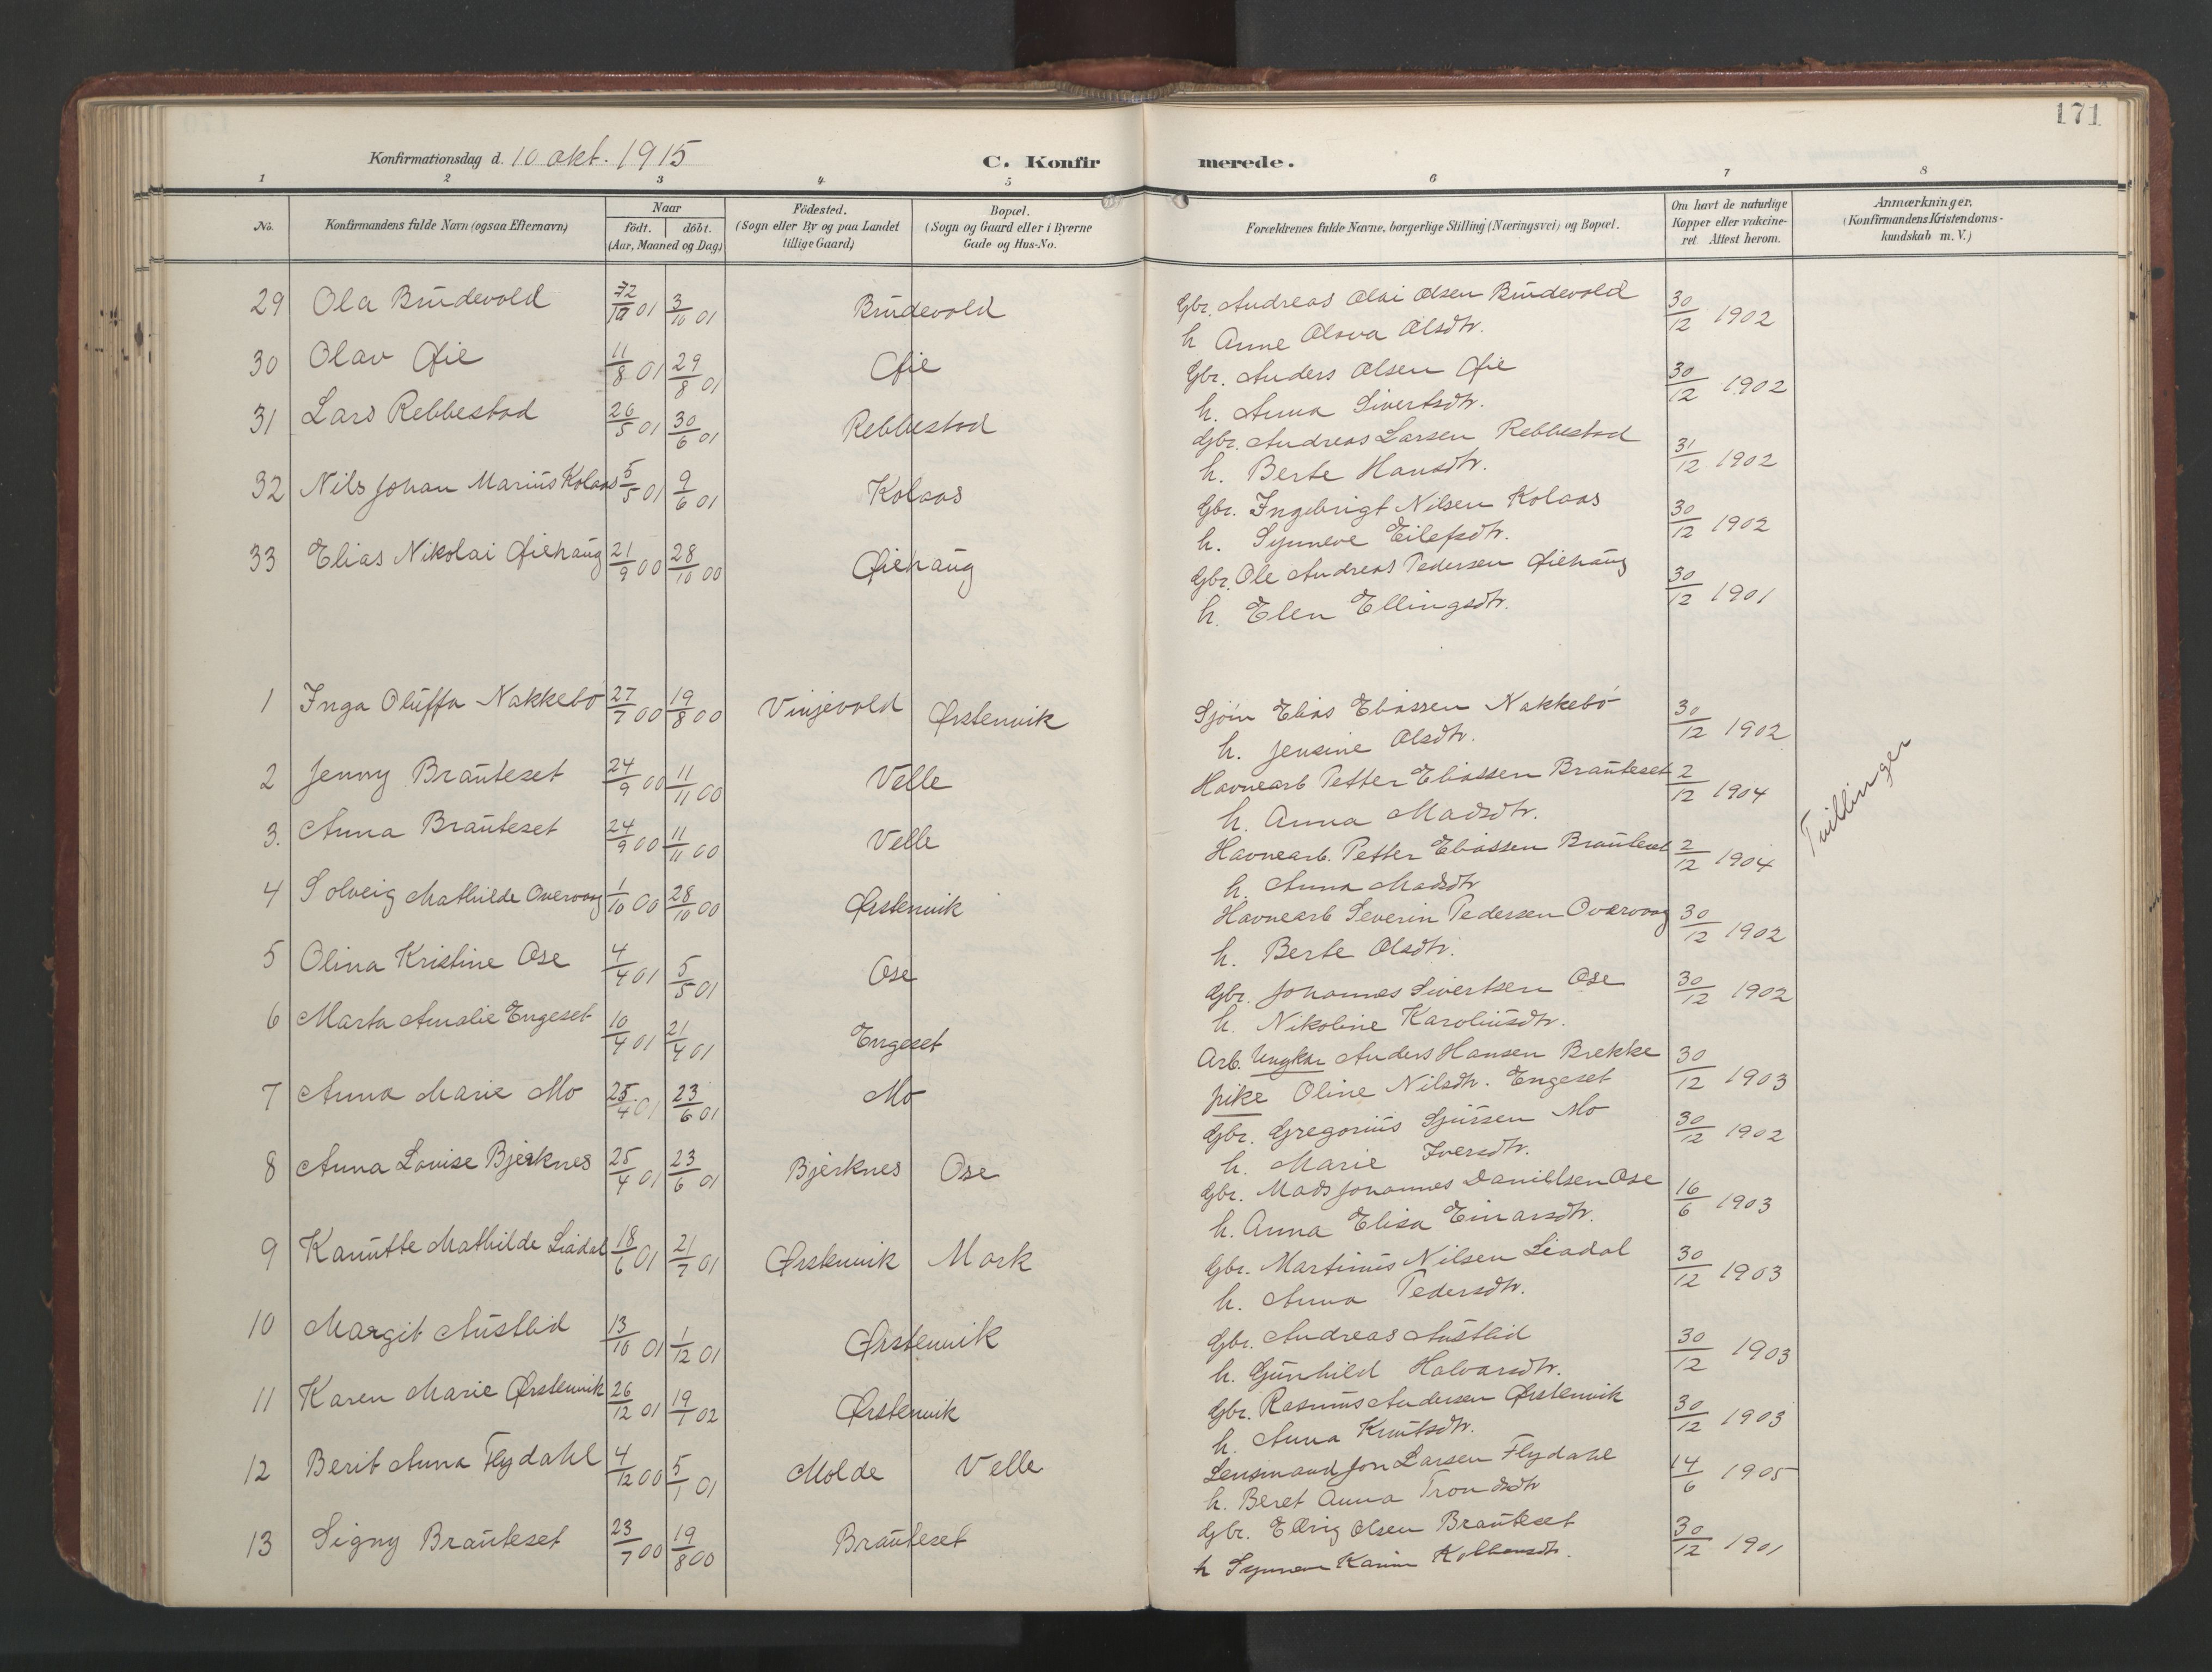 171
Konfirmationsdag d. 10 okt. 1915 C. Konfirmerede.
1 2 3 4 5 6 7 8
No. Konfirmandens fulde Navn (ogsaa Efternavn) Naar født. døbt. (Aar, Maaned og Dag) Fødested. (Sogn eller By og paa Landet tillige Gaard) Bopæl. (Sogn og Gaard eller i Byerne Gade og Hus-No. Forældrenes fulde Navne, borgerlige Stilling (Næringsvei) og Bopæl. Om havt de naturlige Kopper eller vakcineret Attest herom. Anmærkninger. (Konfirmandens Kristendomskundskab m. V.)
29 Ola Brudevold 01 3/10 01 Brudevold Gbr. Andreas Olai Olsen Brudevold 30/12 1902
h Anne Olova Olsdtr.
30 Olav Øie 11/8 01 29/8 01 Øie Gbr. Anders Olsen Øie 30/12 1902
h. Anna Sivertsdtr.
31 Lars Rebbestad 26/5 01 30/6 01 Rebbestad Gbr. Andreas Larsen Rebbestad 31/12 1902
h. Berte Hansdtr.
32 Nils Johan Marius Kolaas 5/5 01 9/6 01 Kolaas Gbr. Ingebrigt Nilsen Kolaas 30/12 1902
h. Synneve Eilefsdtr.
33 Elias Nikolai Øiehaug 21/9 00 28/10 00 Øiehaug Gbr. Ole Andreas Pedersen Øiehaug 30/12 1901
h. Elen Ellingsdtr.
1 Inga Oluffa Nakkebø 27/7 00 19/8 00 Vinjevold Ørstenvik Sjøm Elias Eliassen Nakkebø 30/12 1902
h. Jensine Olsdtr.
2 Jenny Brauteset 24/9 00 11/11 00 Velle Havnearb Petter Eliassen Brauteset 2/12 1904 Tvillinger
h. Anna Madsdtr.
3. Anna Brauteset 24/9 00 11/11 00 Velle Havnearb. Petter Eliassen Brauteset 2/12 1904
h. Anna Madsdtr
4 Solveig Mathilde Overvaag 1/10 00 28/10 00 Ørstenvik Havnearb Severin Pedersen Overvaag 30/12 1902
h. Berte Olsdtr.
5 Olina Kristine Ose 4/4 01 5/5 01 Ose Gbr. Johannes Sivertsen Ose 30/12 1902
h. Nikoline Karoliusdtr.
6 Marta Amalie Engeset 10/4 01 21/4 01 Engeset Arb. Ungkar Anders Hansen Brekke 30/12 1903
pike Oline Nilsdtr. Engeset
7 Anna Marie Mo 25/4 01 23/6 01 Mo Gbr. Gregorius Sjursen Mo 30/12 1902
h. Marie Iversdtr.
8 Anna Lovise Bjerknes 25/4 01 23/6 01 Bjerknes Ose Gbr. Mads Johannes Danielsen Ose 16/6 1903
h. Anna Elisa Einarsdtr.
9 Kanutte Mathilde Liadal 18/6 01 21/7 01 Ørstenvik Mork Gbr. Martinus Nilsen Liadal 30/12 1903
h. Anna Pedersdtr.
10 Margit Austlid 13/10 01 1/12 01 Ørstenvik Gbr. Andreas Austlid 30/12 1903
h. Gunhild Halvarsdtr.
11 Karen Marie Ørstenvik 26/12 01 19/1 02 Ørstenvik Gbr. Rasmus Andersen Ørstenvik 30/12 1903
h. Anna Knutsdtr.
12 Berit Anna Flydahl 4/12 00 5/1 01 Molde Velle Lensmand Jon Larsen Flydahl 14/6 1905
h. Beret Anna Trondsdtr
13 Signy Brauteset 23/7 00 19/8 00 Brauteset Gbr. Elling Olsen Brauteset 30/12 1901
h Synneve Karin